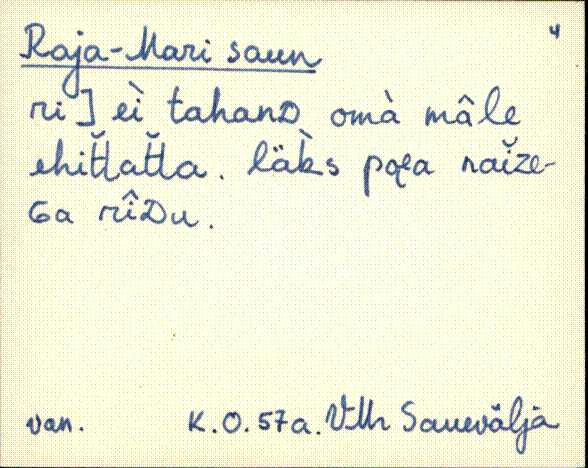 4
Raja-Mari saun
ri] eì tahanD omà mâle
ehit̆t̆at̆t̆a. läk̀s poea naĭze-
Ga rîDu.
van. K.O. 57a. VMr Sauevälja